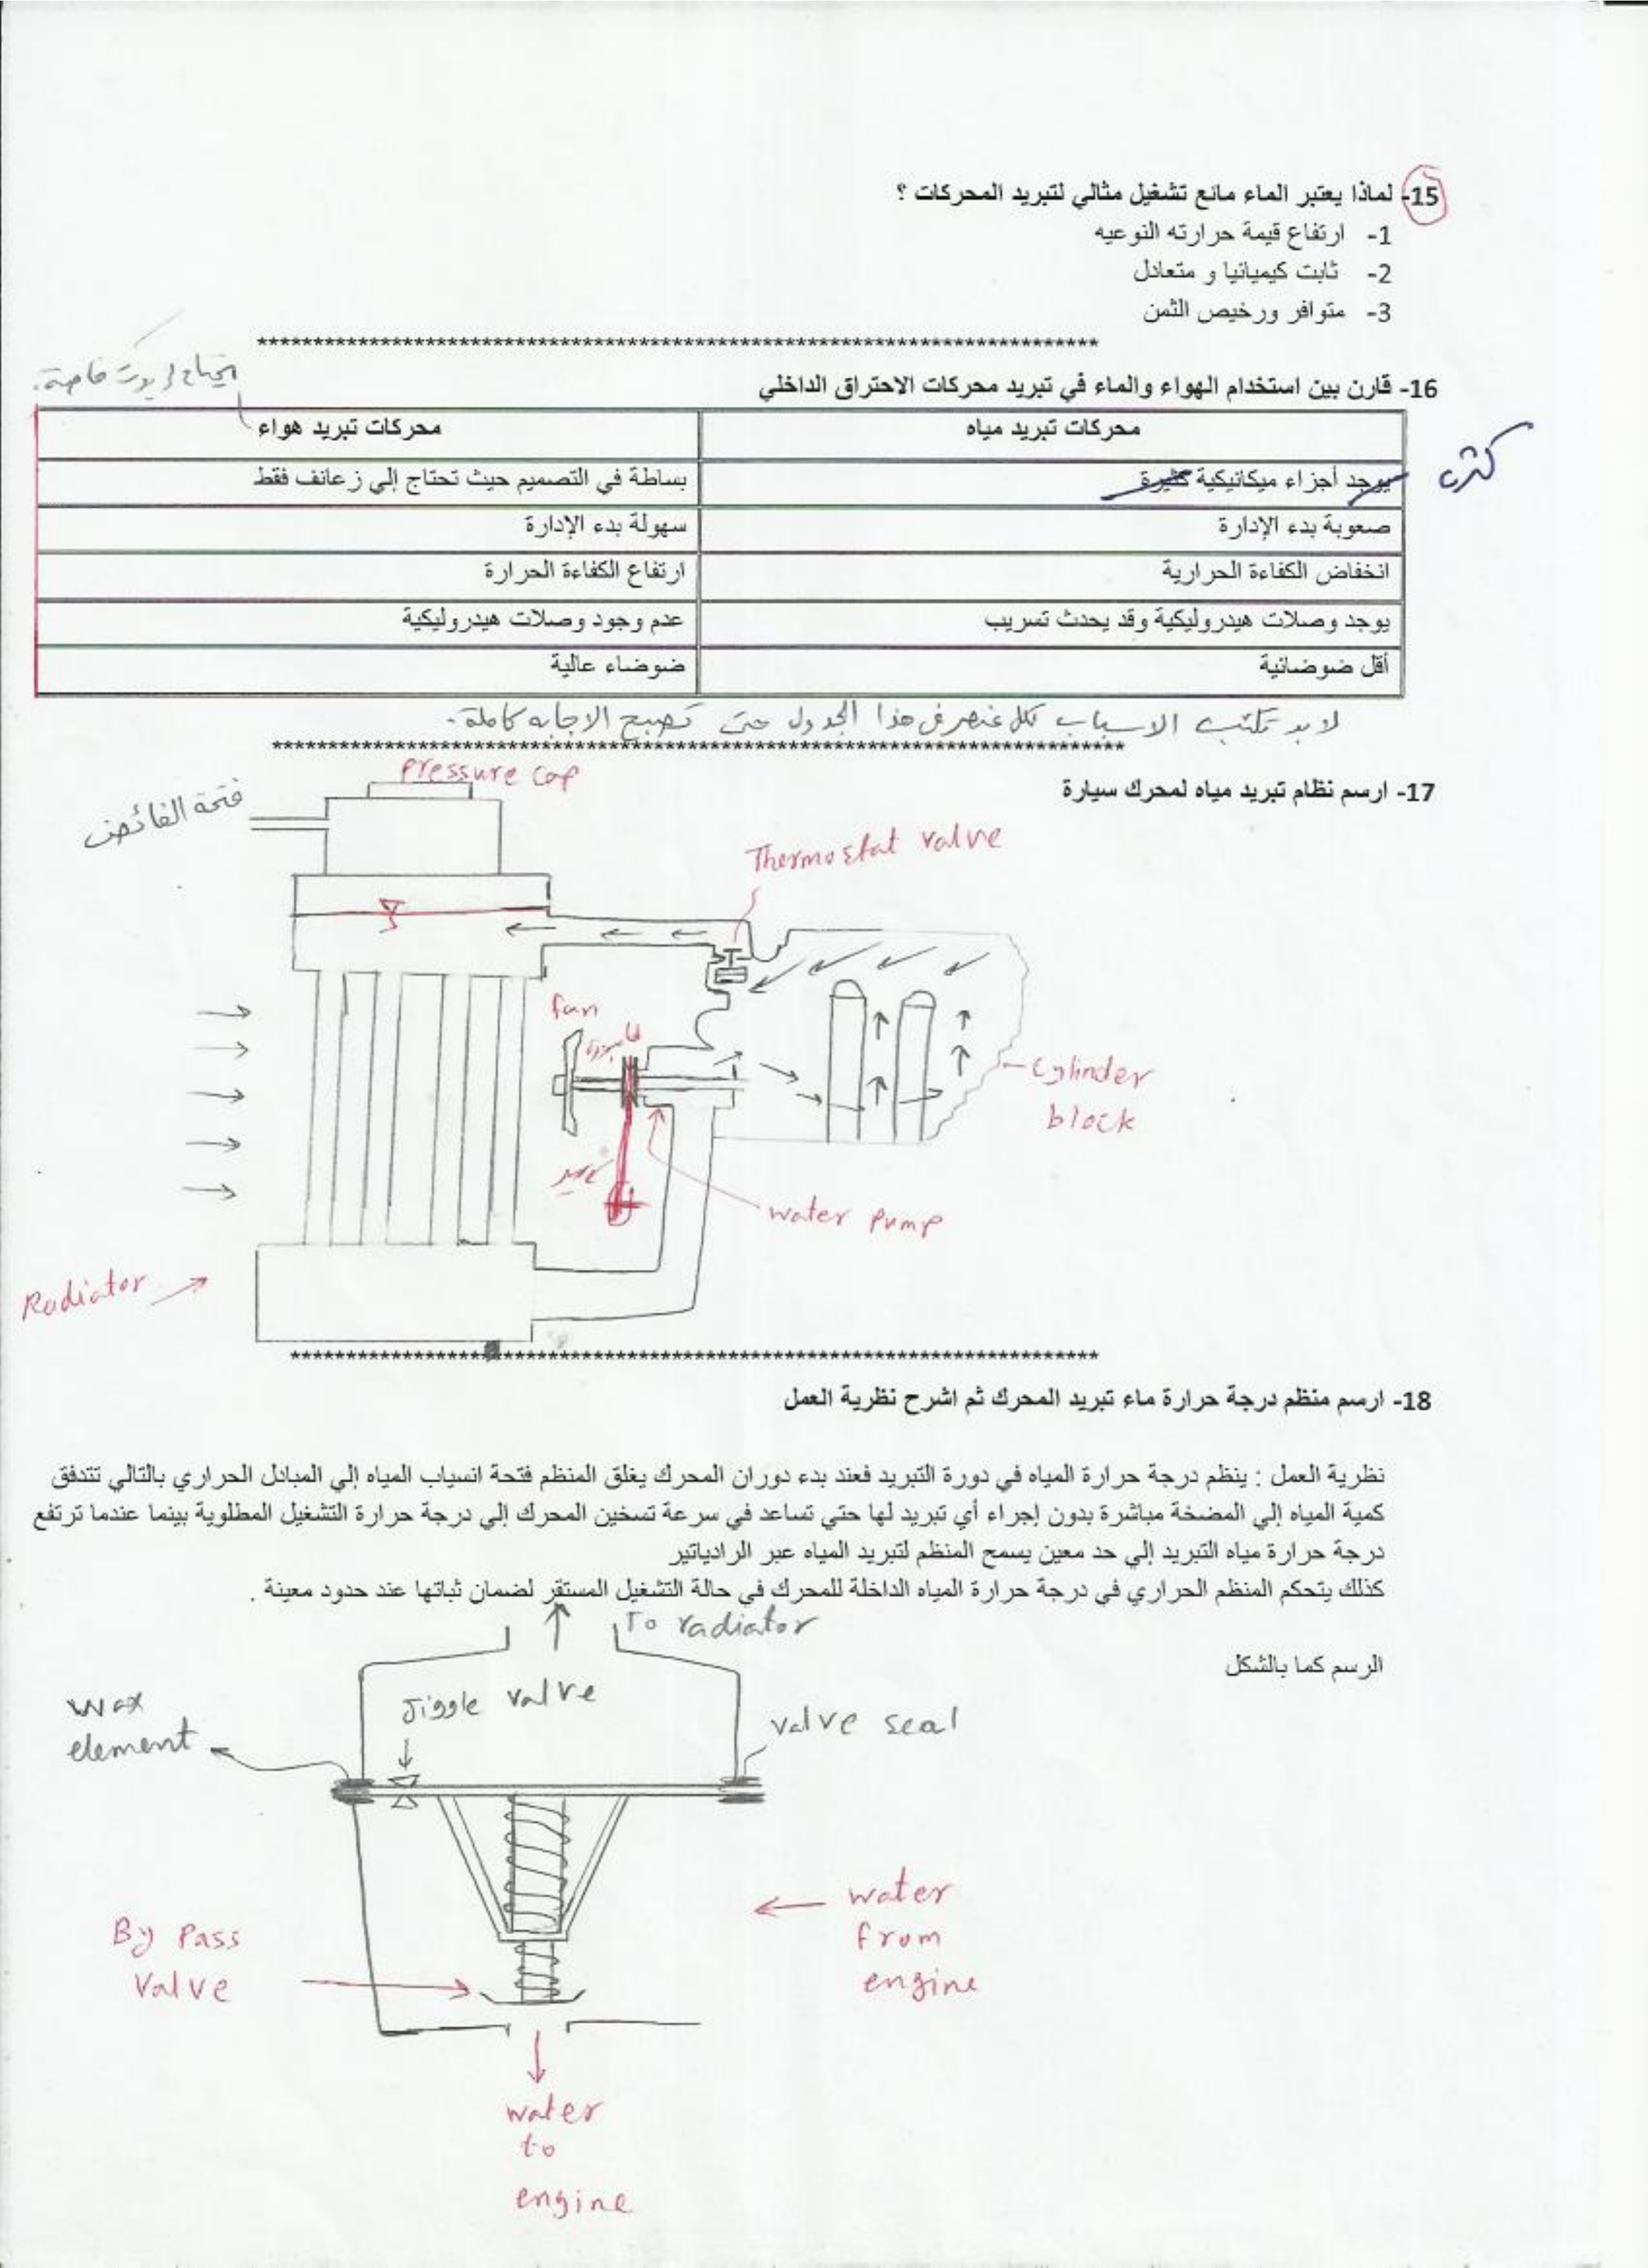 15- لماذا يعتبر الماء مائع تشغيل مثالي لتبريد المحركات ؟
1- ارتفاع قيمة حرارته النوعيه
2- ثابت كيميائيا و متعادل
3- متوافر ورخيص الثمن
******************************************************************************
يحتاج زيوت خاصة.
16- قارن بين استخدام الهواء والماء في تبريد محركات الاحتراق الداخلي
محركات تبريد مياه محركات تبريد هواء
يوجد أجزاء ميكانيكية كثيرة بساطة في التصميم حيث تحتاج إلي زعانف فقط
صعوبة بدء الإدارة سهولة بدء الإدارة
انخفاض الكفاءة الحرارية ارتفاع الكفاءة الحرارة
يوجد وصلات هيدروليكية وقد يحدث تسريب عدم وجود وصلات هيدروليكية
أقل ضوضائية ضوضاء عالية
لابد تكتب الاسباب لكل عنصر في هذا الجدول حتى تصبح الاجابه كاملة.
******************************************************************************
17- ارسم نظام تبريد مياه لمحرك سيارة
Pressure cap
فتحة الفائض
Thermostat valve
fan
سير
Cylinder
block
water pump
Radiator
******************************************************************************
18- ارسم منظم درجة حرارة ماء تبريد المحرك ثم اشرح نظرية العمل
نظرية العمل : ينظم درجة حرارة المياه في دورة التبريد فعند بدء دوران المحرك يغلق المنظم فتحة انسياب المياه إلي المبادل الحراري بالتالي تتدفق
كمية المياه إلي المضخة مباشرة بدون إجراء أي تبريد لها حتي تساعد في سرعة تسخين المحرك إلي درجة حرارة التشغيل المطلوبة بينما عندما ترتفع
درجة حرارة مياه التبريد إلي حد معين يسمح المنظم لتبريد المياه عبر الرادياتير
كذلك يتحكم المنظم الحراري في درجة حرارة المياه الداخلة للمحرك في حالة التشغيل المستقر لضمان ثباتها عند حدود معينة .
To radiator
الرسم كما بالشكل
Jiggle valve
wax
element
valve seal
By Pass
Valve
water
from
engine
water
to
engine